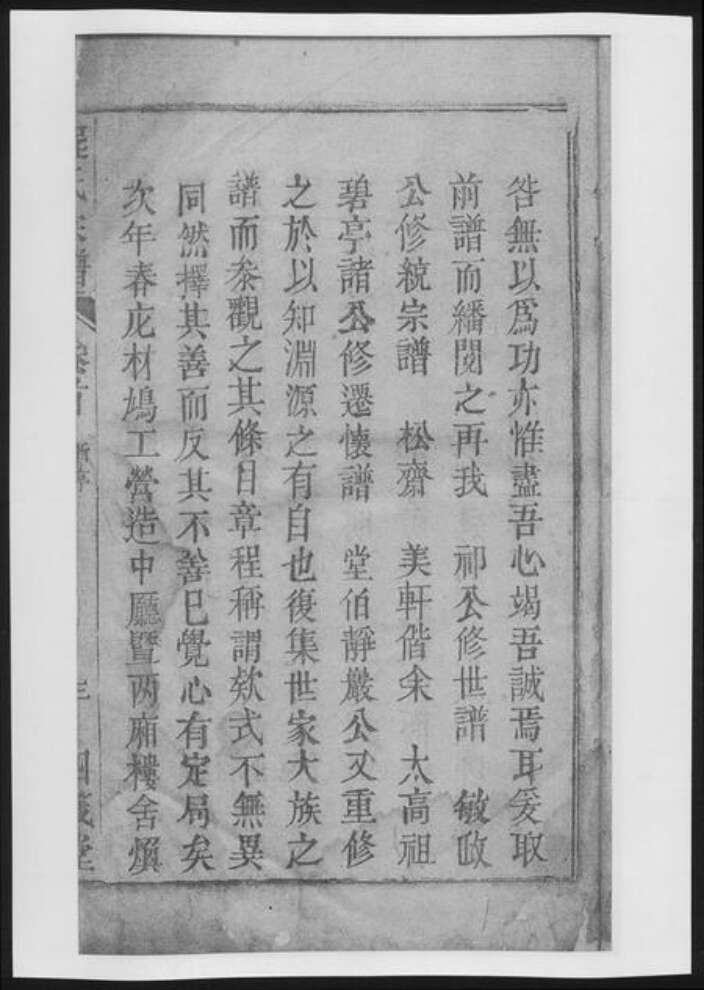 咎無以爲功亦惟盡吾心竭吾誠焉耳爰取
前譜而繙閱之再我 祁公修世譜 敏政
公修統宗譜 松齋 美軒偕余 太高祖
碧亭諸公修遷懷譜 堂伯靜嚴公又重修
之於以知淵源之有自也復集世家大族之
譜而叅觀之其條目章程稱謂欸式不無異
同然擇其善而反其不善已覺心有定局矣
次年春庀材鳩工營造中廳暨两廂樓舍煥
氏宗譜 卷首